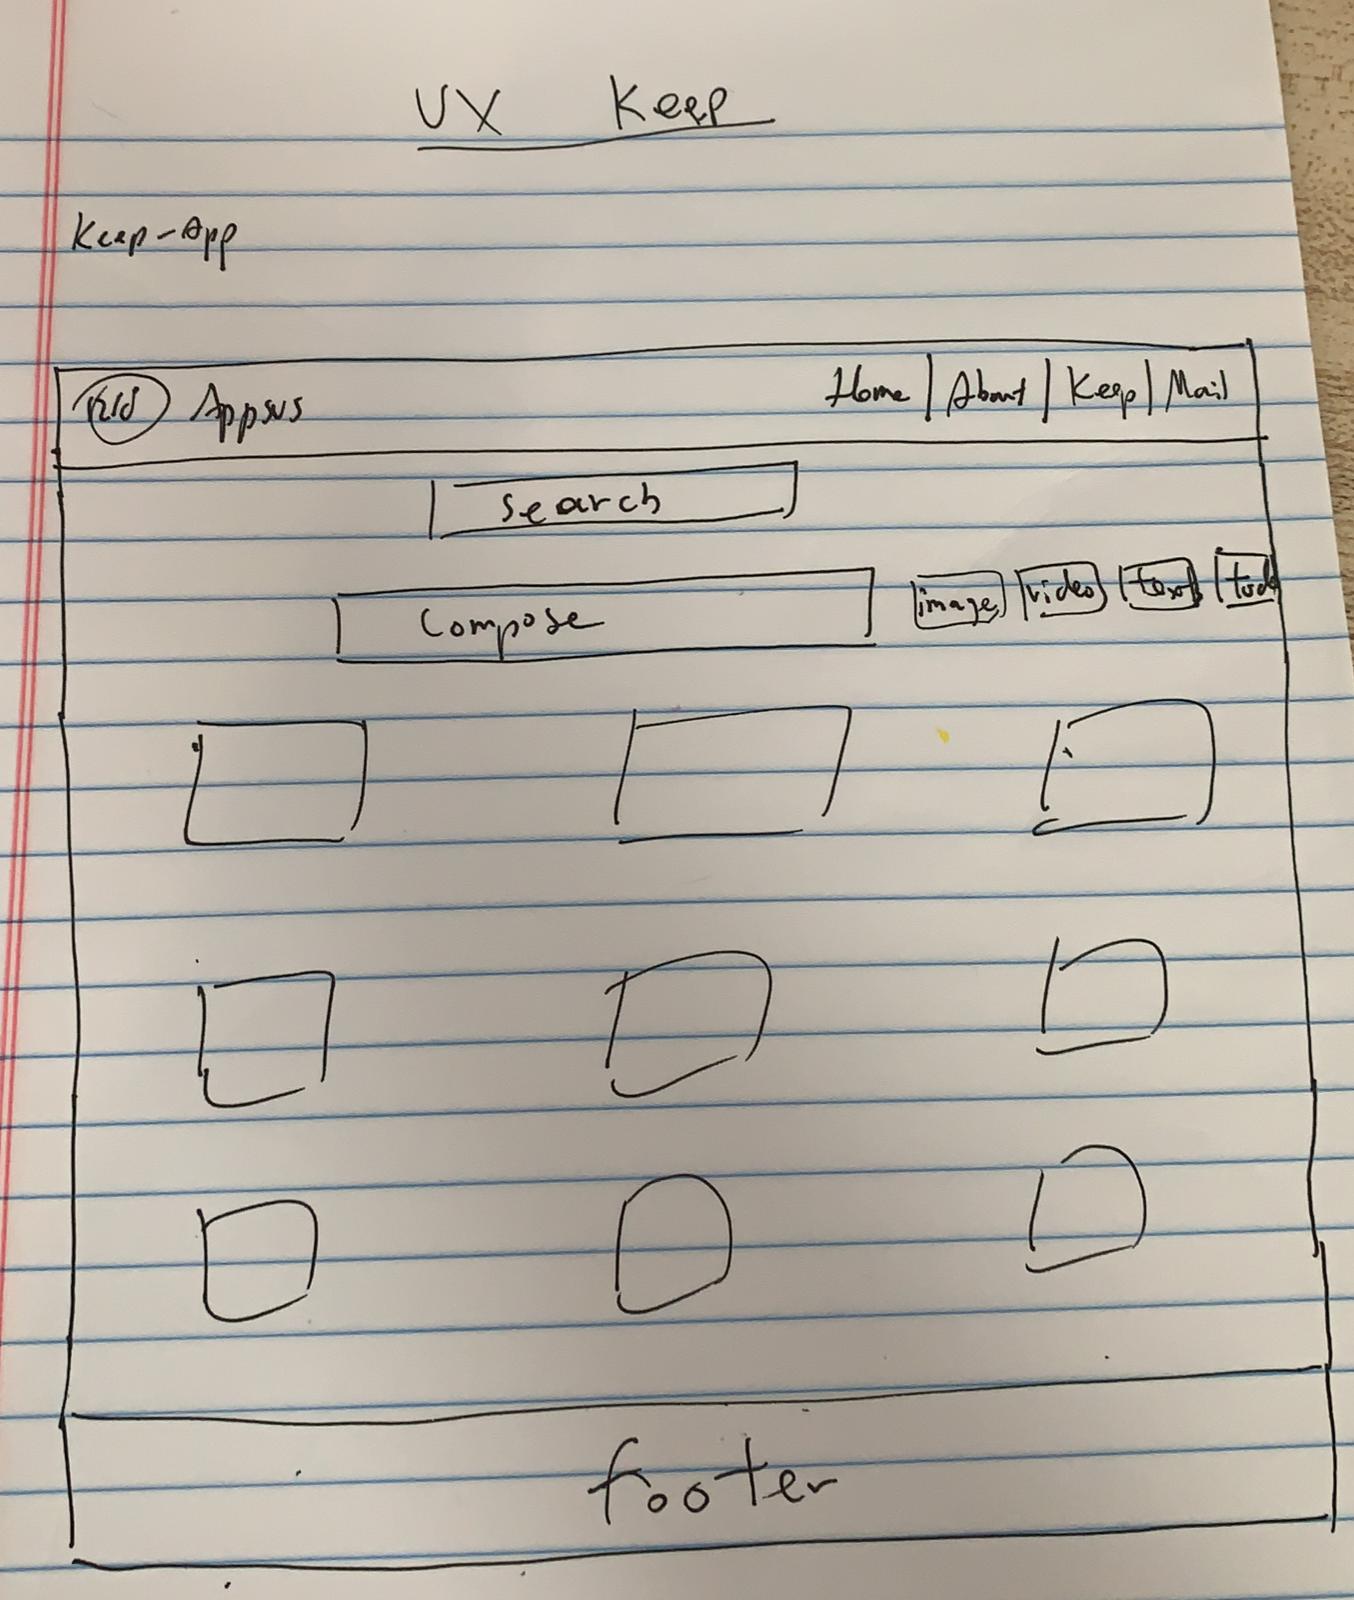 UX Keep
Keep-App
Appsus
Home | About | Keep | Mail
search
Compose
image video text todo
footer